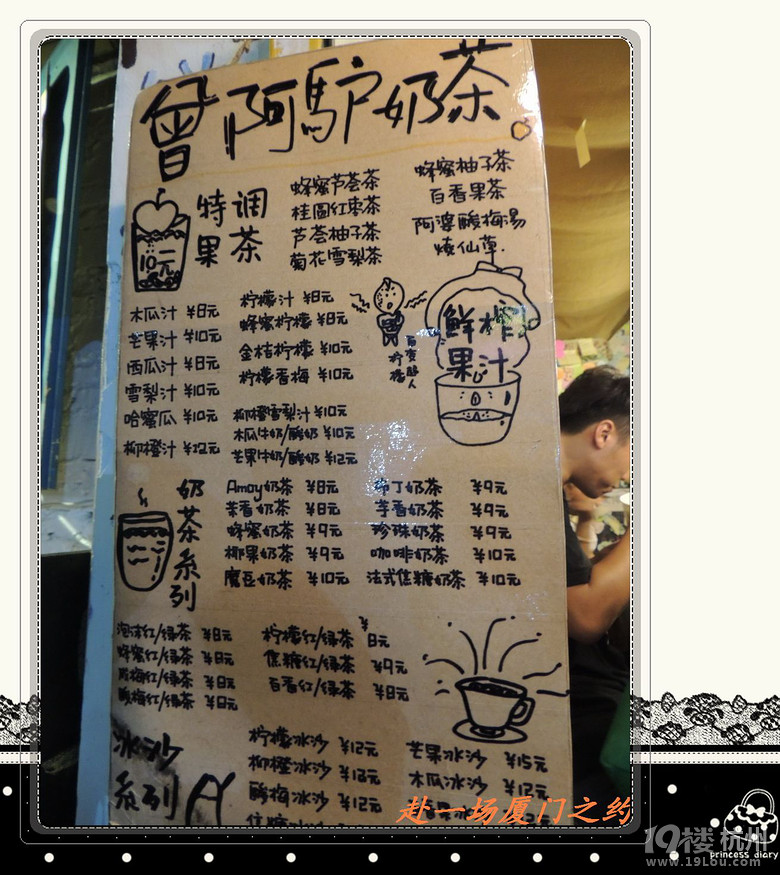 曾阿驴奶茶
特调
果茶
10元
蜂蜜芦荟茶
桂圆红枣茶
芦荟柚子茶
菊花雪梨茶
蜂蜜柚子茶
百香果茶
阿婆酸梅湯
烧仙草
鲜榨
果汁
木瓜汁 ¥8元
芒果汁 ¥10元
西瓜汁 ¥8元
雪梨汁 ¥10元
哈蜜瓜 ¥10元
柳橙汁 ¥12元
柠檬汁 ¥8元
蜂蜜柠檬 ¥8元
金桔柠檬 ¥10元
柠檬香梅 ¥10元
柳橙雪梨汁 ¥10元
木瓜牛奶/酸奶 ¥10元
芒果牛奶/酸奶 ¥12元
奶茶系列
Amoy奶茶 ¥8元
茉香奶茶 ¥8元
蜂蜜奶茶 ¥9元
椰果奶茶 ¥9元
魔豆奶茶 ¥10元
布丁奶茶 ¥9元
芋香奶茶 ¥9元
珍珠奶茶 ¥9元
咖啡奶茶 ¥10元
法式焦糖奶茶 ¥10元
泡沫红/绿茶 ¥8元
蜂蜜红/绿茶 ¥8元
梅红/绿茶 ¥8元
酸梅红/绿茶 ¥8元
柠檬红/绿茶 ¥8元
焦糖红/绿茶 ¥9元
百香红/绿茶 ¥8元
冰沙
系列
柠檬冰沙 ¥12元
柳橙冰沙 ¥13元
酸梅冰沙 ¥12元
芒果冰沙 ¥15元
木瓜冰沙 ¥12元
赴一场厦门之约
19楼杭州
www.19Lou.com
princess diary